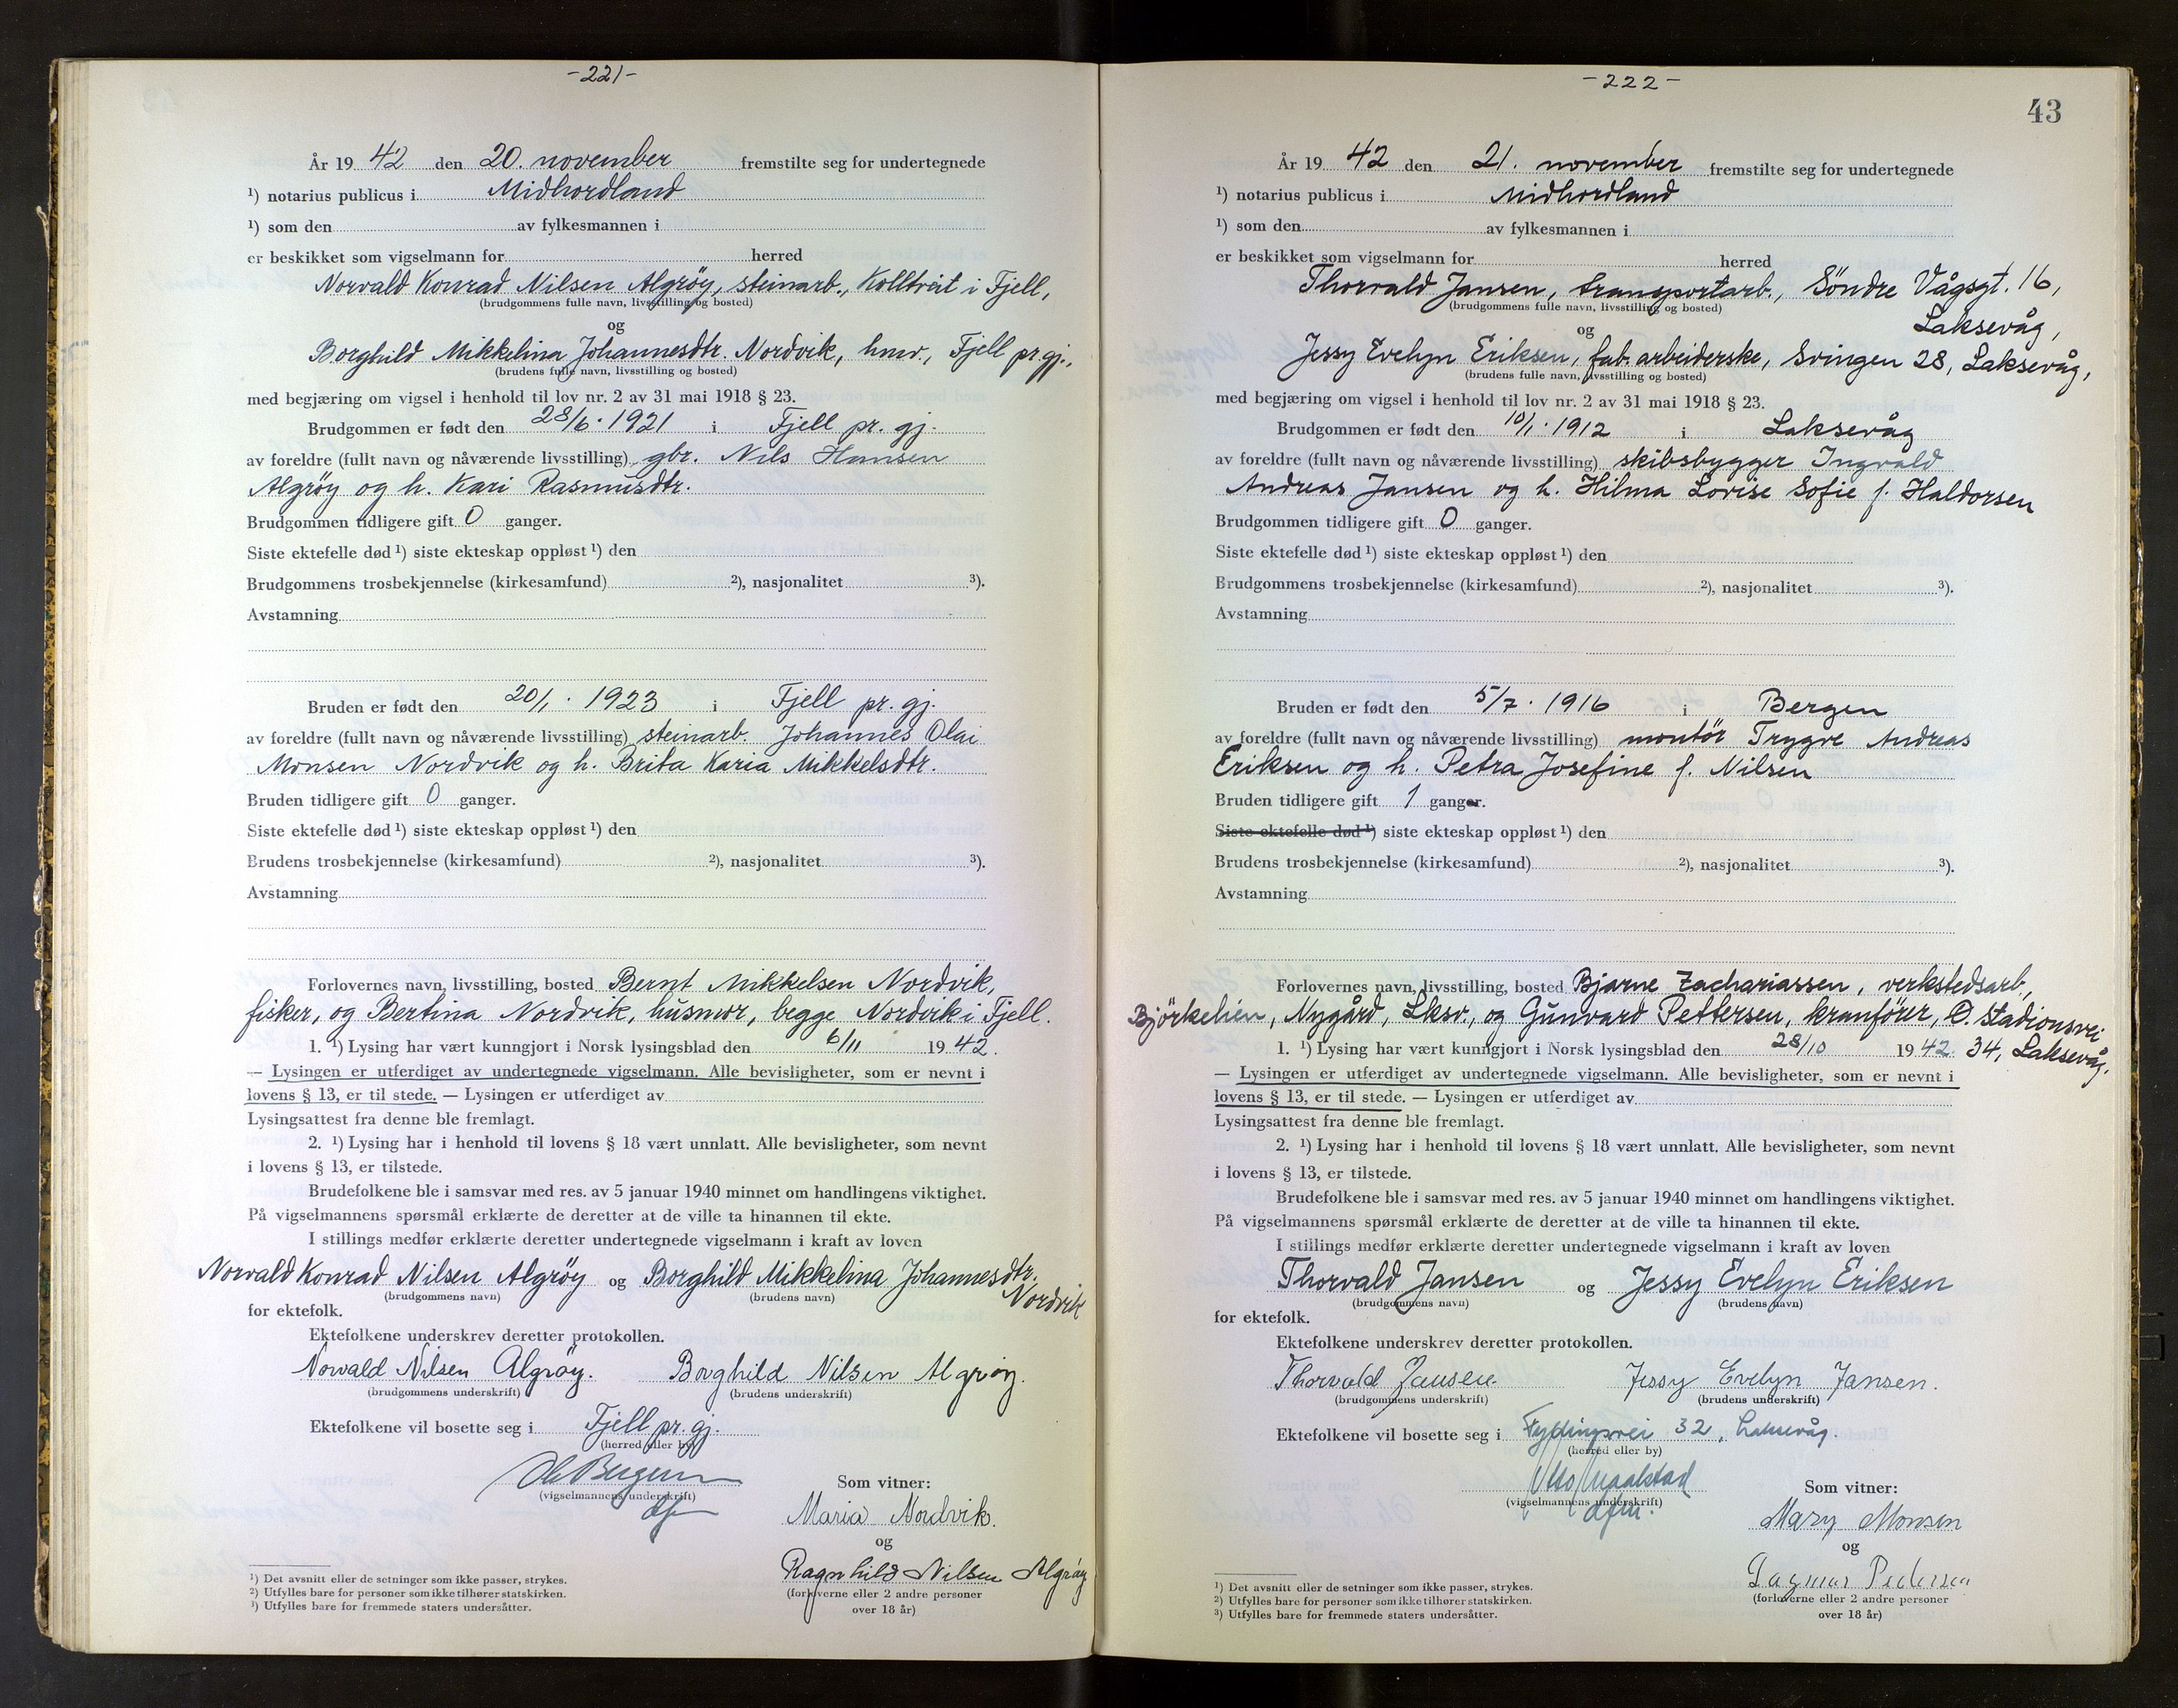 -221-
År 19 42 den 20. november fremstilte seg for undertegnede
¹) notarius publicus i Midhordland
¹) som den av fylkesmannen i
er beskikket som vigselmann for herred
Norvald Konrad Nilsen Algrøy, steinarb., Kolltveit i Fjell,
(brudgommens fulle navn, livsstilling og bosted)
og
Borghild Mikkelina Johannesdtr. Nordvik, hmv., Fjell pr.gj.,
(brudens fulle navn, livsstilling og bosted)
med begjæring om vigsel i henhold til lov nr. 2 av 31 mai 1918 § 23.
Brudgommen er født den 28/6. 1921 i Fjell pr. gj.
av foreldre (fullt navn og nåværende livsstilling) gbr. Nils Hansen
Algrøy og h. Kari Rasmusdtr.
Brudgommen tidligere gift 0 ganger.
Siste ektefelle død ¹) siste ekteskap oppløst ¹) den
Brudgommens trosbekjennelse (kirkesamfund) ²), nasjonalitet ³).
Avstamning
Bruden er født den 20/1. 1923 i Fjell pr. gj.
av foreldre (fullt navn og nåværende livsstilling) steinarb. Johannes Olai
Monsen Nordvik og h. Brita Karia Mikkelsdtr.
Bruden tidligere gift 0 ganger.
Siste ektefelle død ¹) siste ekteskap oppløst ¹) den
Brudens trosbekjennelse (kirkesamfund) ²), nasjonalitet ³).
Avstamning
Forlovernes navn, livsstilling, bosted Bernt Mikkelsen Nordvik,
fisker, og Bertina Nordvik, husmor, begge Nordvik i Fjell.
1. ¹) Lysing har vært kunngjort i Norsk lysingsblad den 6/11 19 42.
— Lysingen er utferdiget av undertegnede vigselmann. Alle bevisligheter, som er nevnt i
lovens § 13, er til stede. — Lysingen er utferdiget av
Lysingsattest fra denne ble fremlagt.
2. ¹) Lysing har i henhold til lovens § 18 vært unnlatt. Alle bevisligheter, som nevnt
i lovens § 13, er tilstede.
Brudefolkene ble i samsvar med res. av 5 januar 1940 minnet om handlingens viktighet.
På vigselmannens spørsmål erklærte de deretter at de ville ta hinannen til ekte.
I stillings medfør erklærte deretter undertegnede vigselmann i kraft av loven
Norvald Konrad Nilsen Algrøy og Borghild Mikkelina Johannesdtr.
Nordvik
(brudgommens navn) (brudens navn)
for ektefolk.
Ektefolkene underskrev deretter protokollen.
Norvald Nilsen Algrøy. Borghild Nilsen Algrøy.
(brudgommens underskrift) (brudens underskrift)
Ektefolkene vil bosette seg i Fjell pr. gj.
(herred eller by)
(vigselmannens underskrift)
Som vitner:
Maria Nordvik.
og
Ragnhild Nilsen Algrøy
(forloverne eller 2 andre personer
over 18 år)
¹) Det avsnitt eller de setninger som ikke passer, strykes.
²) Utfylles bare for personer som ikke tilhører statskirken.
³) Utfylles bare for fremmede staters undersåtter.
-222-
43
År 19 42 den 21. november fremstilte seg for undertegnede
¹) notarius publicus i Midhordland
¹) som den av fylkesmannen i
er beskikket som vigselmann for herred
Thorvald Jansen, transportarb., Söndre Vågsgt. 16,
(brudgommens fulle navn, livsstilling og bosted)
og Laksevåg,
Jessy Evelyn Eriksen, fab. arbeiderske, Svingen 28, Laksevåg,
(brudens fulle navn, livsstilling og bosted)
med begjæring om vigsel i henhold til lov nr. 2 av 31 mai 1918 § 23.
Brudgommen er født den 10/1. 1912 i Laksevåg
av foreldre (fullt navn og nåværende livsstilling) skibsbygger Ingvald
Andreas Jansen og h. Hilma Lovise Sofie f. Haldorsen
Brudgommen tidligere gift 0 ganger.
Siste ektefelle død ¹) siste ekteskap oppløst ¹) den
Brudgommens trosbekjennelse (kirkesamfund) ²), nasjonalitet ³).
Avstamning
Bruden er født den 5/7. 1916 i Bergen
av foreldre (fullt navn og nåværende livsstilling) montör Trygve Andreas
Eriksen og h. Petra Josefine f. Nilsen
Bruden tidligere gift 1 ganger.
Siste ektefelle død ¹) siste ekteskap oppløst ¹) den
Brudens trosbekjennelse (kirkesamfund) ²), nasjonalitet ³).
Avstamning
Forlovernes navn, livsstilling, bosted Bjarne Zachariassen, verkstedsarb.,
Björkelien, Nygård, Lksv., og Gunvard Pettersen, kranförer, Ö. Stadionsvei
34, Laksevåg.
1. ¹) Lysing har vært kunngjort i Norsk lysingsblad den 28/10 19 42.
— Lysingen er utferdiget av undertegnede vigselmann. Alle bevisligheter, som er nevnt i
lovens § 13, er til stede. — Lysingen er utferdiget av
Lysingsattest fra denne ble fremlagt.
2. ¹) Lysing har i henhold til lovens § 18 vært unnlatt. Alle bevisligheter, som nevnt
i lovens § 13, er tilstede.
Brudefolkene ble i samsvar med res. av 5 januar 1940 minnet om handlingens viktighet.
På vigselmannens spørsmål erklærte de deretter at de ville ta hinannen til ekte.
I stillings medfør erklærte deretter undertegnede vigselmann i kraft av loven
Thorvald Jansen og Jessy Evelyn Eriksen
(brudgommens navn) (brudens navn)
for ektefolk.
Ektefolkene underskrev deretter protokollen.
Thorvald Jansen Jessy Evelyn Jansen.
(brudgommens underskrift) (brudens underskrift)
Ektefolkene vil bosette seg i 32, Laksevåg.
(herred eller by)
(vigselmannens underskrift)
Som vitner:
Mary Monsen
og
Dagmar Pedersen
(forloverne eller 2 andre personer
over 18 år)
¹) Det avsnitt eller de setninger som ikke passer, strykes.
²) Utfylles bare for personer som ikke tilhører statskirken.
³) Utfylles bare for fremmede staters undersåtter.